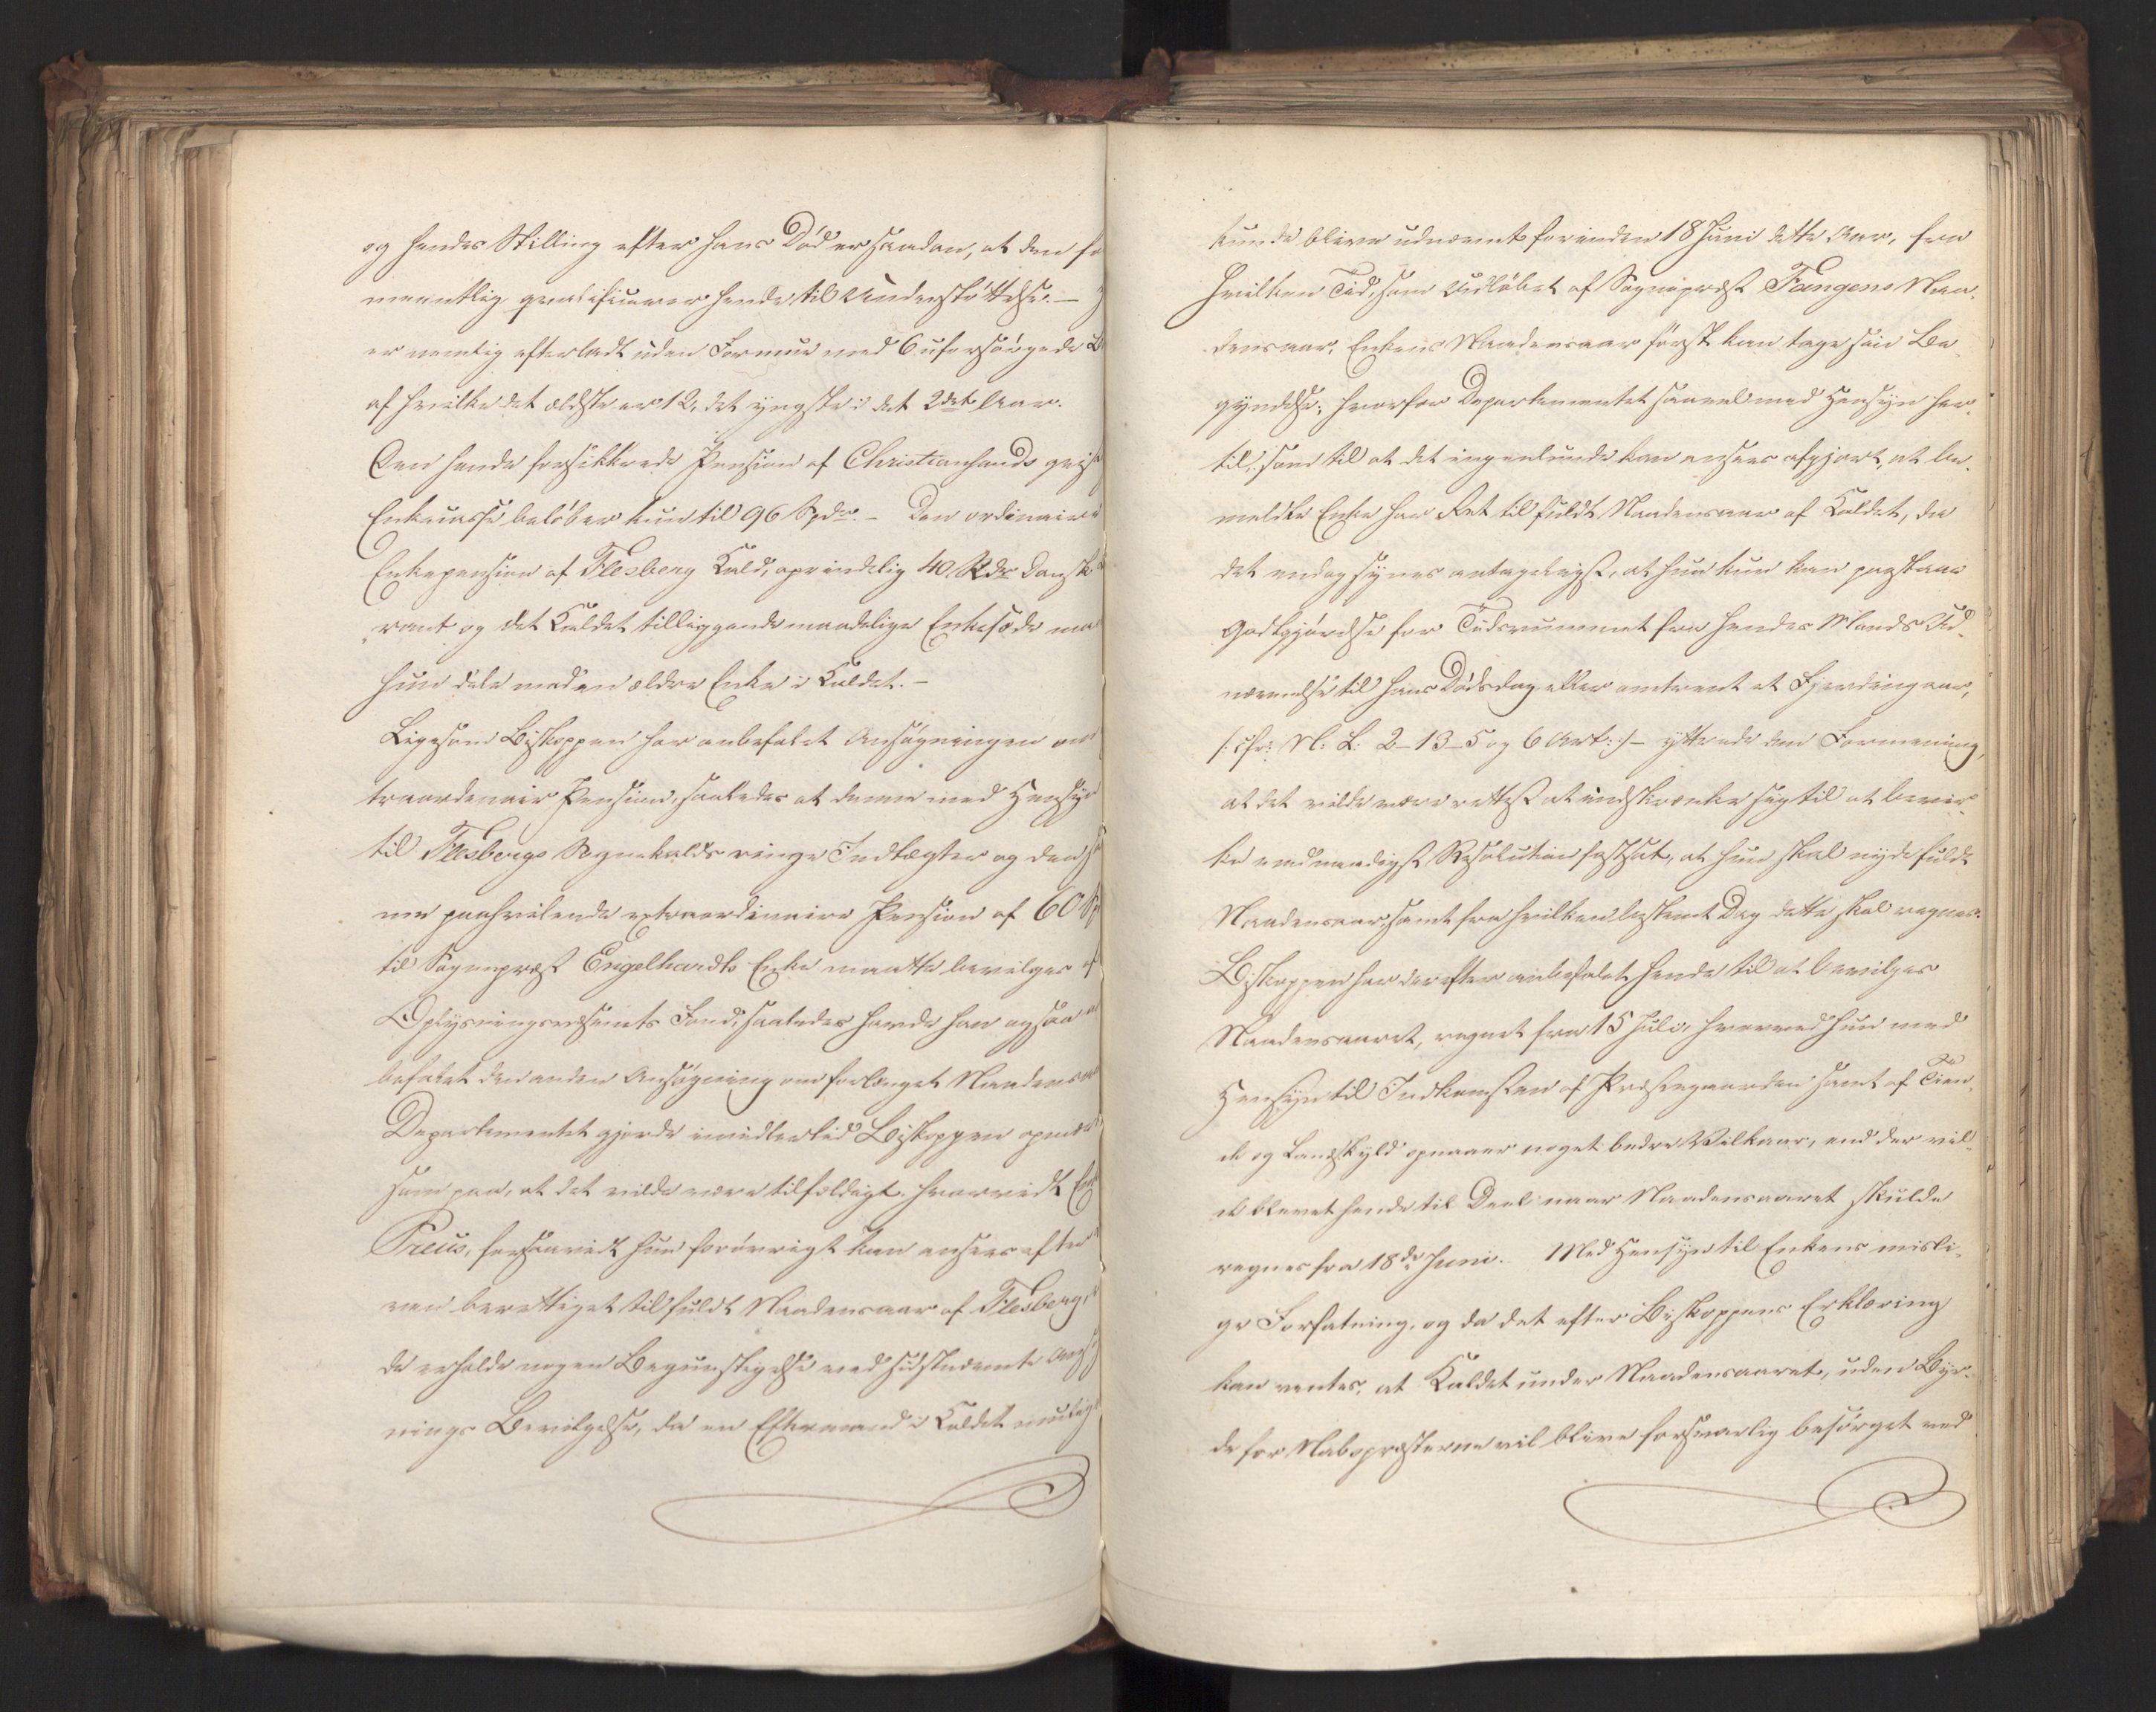 og hendes Stilling efter hans Død er saadan, at den for
mentlig qvalificerer hende til Understøttelse. —
er nemlig efterladt uden Formue med 6 uforsørgede B
af hvilke det ældste er 12, det yngste i det 2det Aar.
Den hende forsikkrede Pension af Christiansands geist
Enkecasse beløber kun til 96 Spdr. — Den ordinaire
Enkepension af Flesberg Kald, oprindelig 40 Rdr. Dansk
rant og det Kaldet tilliggende maadelige Enkesæde maa
hun dele med en ældre Enke i Kaldet. —
Ligesom Biskoppen har anbefalet Ansøgningen om
traordinair Pension, saaledes at denne med Hensyn
til Flesbergs Sognekalds ringe Indtægter og den
me paahvilende extraordinaire Pension af 60 Sp
til Sognepræst Engelhardts Enke maatte bevilges af
Oplysningsvæsenets Fond, saaledes havde han ogsaa a
befalet den anden Ansøgning om forlænget Naadensa
Departementet gjorde imidlertid Biskoppen opmærk
som paa, at det vilde være tilfældigt, hvorvidt Enk
Preus, forsaavidt hun forøvrigt kan ansees efter
ven berettiget til fuldt Naadensaar af Flesberg,
de erholde nogen Begunstigelse ved sidstnævnte Ansøg
nings Bevilgelse, da en Eftermand i Kaldet muelig
kunde blive udnævnt forinden 18 Juni dette Aar, fra
hvilken Tid, som Udløbet af Sognepræst Fangens Naa-
densaar, Enkens Naadensaar først kan tage sin Be-
gyndelse; hvorfor Departementet saavel med Hensyn her-
til, som til at det ingenlunde kan ansees afgjort, at be-
meldte Enke har Ret til fuldt Naadensaar af Kaldet, da
det endog synes antageligst, at hun kun kan paastaae
Godtgjørelse for Tidsrummet fra hendes Mands Ud-
nævnelse til hans Dødsdag eller omtrent et Fjerdingaar,
/: cfr: N: L: 2-13-5 og 6 Art: :/ — yttrede den Formening,
at det vilde være rettest at indskrænke sig til at bevir-
ke ved naadigst Resolution fastsat, at hun skal nyde fuldt
Naadensaar, samt fra hvilken bestemt Dag dette skal regnes.
Biskoppen har derefter anbefalet hende til at bevilges
Naadensaaret, regnet fra 15 Juli, hvorved hun med
Hensyn til Indkomsten af Præstegaarden samt af Tien-
de og Landskyld opnaaer noget bedre Vilkaar, end der vil-
de blevet hende til Deel naar Naadensaaret skulde
regnes fra 18de Juni. Med Hensyn til Enkens misli-
ge Forfatning, og da det efter Biskoppens Erklæring
kan ventes, at Kaldet under Naadensaaret, uden Byr-
de for Nabopræsterne vil blive forsvarlig besørget ved